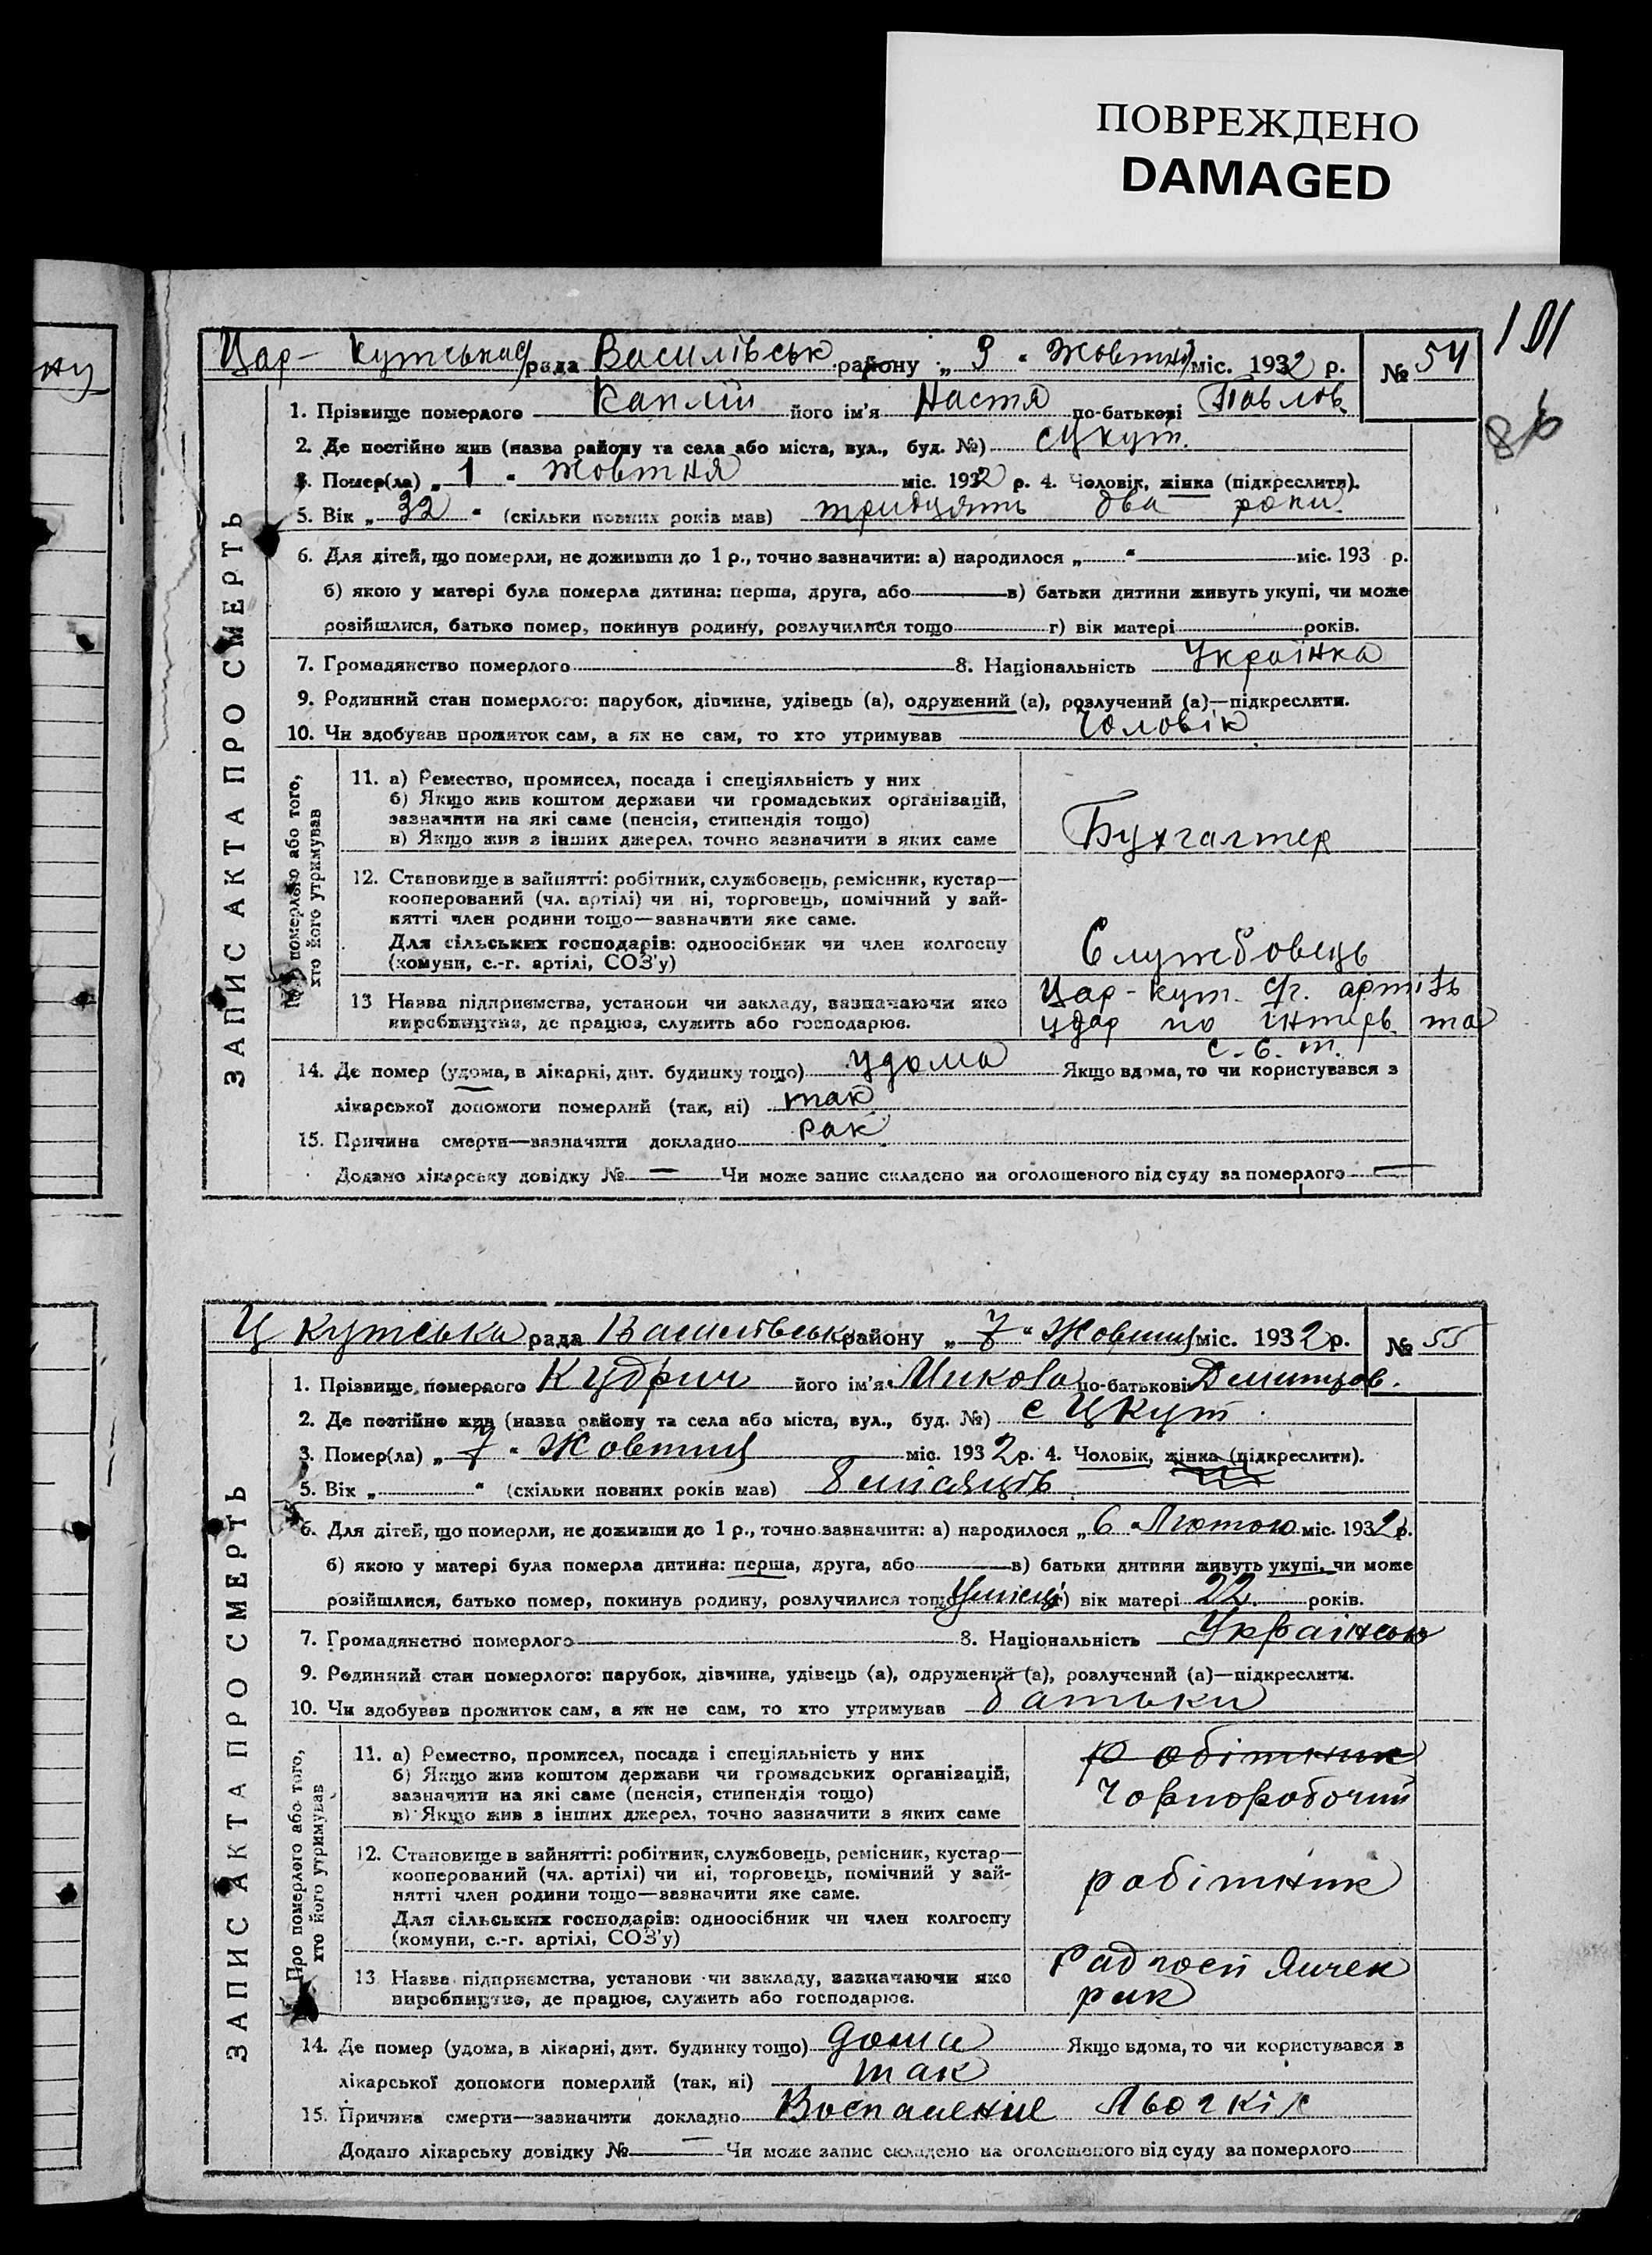 ПОВРЕЖДЕНО
DAMAGED
101
86
Цар- Кутська рада Василівськ району „ 3 “ Жовтня міс. 1932 р. № 54
1. Прізвище померлого Каплій його ім'я Настя по-батькові Павлов.
2. Де постійно жив (назва району та села або міста, вул., буд. №) с Цкут.
3. Помер(ла) „ 1 “ жовтня міс. 1932 р. 4. Чоловік, жінка (підкреслити).
5. Вік „ 32 “ (скільки повних років мав) тридцять два роки.
6. Для дітей, що померли, не доживши до 1 р., точно зазначити: а) народилося „ “ міс. 193 р.
б) якою у матері була померла дитина: перша, друга, або в) батьки дитини живуть укупі, чи може
розійшлися, батько помер, покинув родину, розлучилися тощо г) вік матері років.
7. Громадянство померлого 8. Національність Українка
9. Родинний стан померлого: парубок, дівчина, удівець (а), одружений (а), розлучений (а)—підкреслити.
10. Чи здобував прожиток сам, а як не сам, то хто утримував Чоловік
ЗАПИС АКТА ПРО СМЕРТЬ
померлого або того,
хто його утримував
11. а) Ремество, промисел, посада і спеціяльність у них
б) Якщо жив коштом держави чи громадських організацій,
зазначити на які саме (пенсія, стипендія тощо)
в) Якщо жив з інших джерел, точно зазначити з яких саме
Бухгалтер
12. Становище в зайнятті: робітник, службовець, ремісник, кустар—
кооперований (чл. артілі) чи ні, торговець, помічний у зай-
нятті член родини тощо—зазначити яке саме.
Для сільських господарів: одноосібник чи член колгоспу
(комуни, с.-г. артілі, СОЗ'у)
Службовець
13 Назва підприємства, установи чи закладу, зазначаючи яко
виробництво, де працює, служить або господарює.
Цар-кут. с/г. артіль
удар по
14. Де помер (удома, в лікарні, дит. будинку тощо) удома Якщо вдома, то чи користувався з
лікарської допомоги померлий (так, ні) так
15. Причина смерти—зазначити докладно рак
Додано лікарську довідку № — Чи може запис складено на оголошеного від суду за померлого —
Ц Кутська рада Василівськ району „ 7 “ Жовтня міс. 1932 р. № 55
1. Прізвище померлого Кудрич його ім'я Микола по-батькові Дмитров.
2. Де постійно жив (назва району та села або міста, вул., буд. №) с Цкут
3. Помер(ла) „ 7 “ Жовтня міс. 1932 р. 4. Чоловік, жінка (підкреслити).
5. Вік „ “ (скільки повних років мав) 8 місяців
6. Для дітей, що померли, не доживши до 1 р., точно зазначити: а) народилося „ 6 “ Лютого міс. 1932 р.
б) якою у матері була померла дитина: перша, друга, або в) батьки дитини живуть укупі, чи може
розійшлися, батько помер, покинув родину, розлучилися тощо г) вік матері 22 років.
7. Громадянство померлого 8. Національність
9. Родинний стан померлого: парубок, дівчина, удівець (а), одружений (а), розлучений (а)—підкреслити.
10. Чи здобував прожиток сам, а як не сам, то хто утримував батьки
ЗАПИС АКТА ПРО СМЕРТЬ
Про померлого або того,
хто його утримував
11. а) Ремество, промисел, посада і спеціяльність у них
б) Якщо жив коштом держави чи громадських організацій,
зазначити на які саме (пенсія, стипендія тощо)
в) Якщо жив з інших джерел, точно зазначити з яких саме
робітник
Чорноробочий
12. Становище в зайнятті: робітник, службовець, ремісник, кустар—
кооперований (чл. артілі) чи ні, торговець, помічний у зай-
нятті член родини тощо—зазначити яке саме.
Для сільських господарів: одноосібник чи член колгоспу
(комуни, с.-г. артілі, СОЗ'у)
робітник
13 Назва підприємства, установи чи закладу, зазначаючи яко
виробництво, де працює, служить або господарює.
Радгосп
14. Де помер (удома, в лікарні, дит. будинку тощо) дома Якщо вдома, то чи користувався з
лікарської допомоги померлий (так, ні) так
15. Причина смерти—зазначити докладно Воспаленіе Льогкіх
Додано лікарську довідку № — Чи може запис складено на оголошеного від суду за померлого